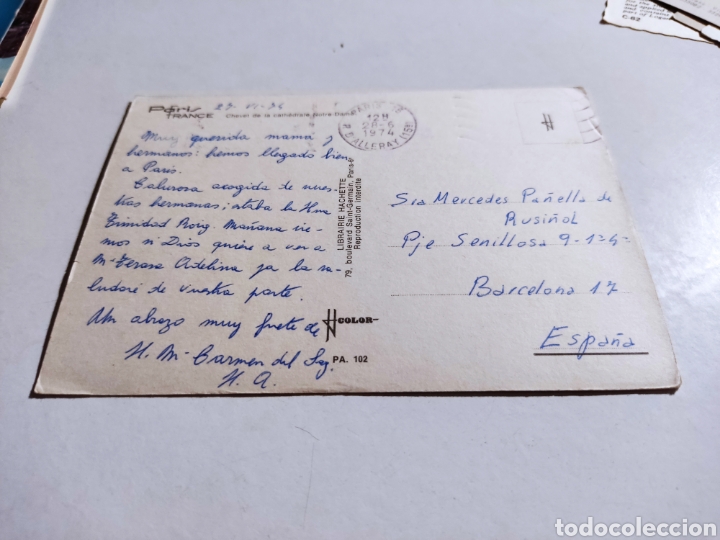 C-62
Paris
FRANCE
27-VI-74
Chevet de la cathédrale Notre-Dame
Muy querida mamá y
hermanos: hemos llegado bien
a París.
Calurosa acogida de nues-
tras hermanas; estaba la Hna
Trinidad Roig. Mañana ire-
mos si Dios quiere a ver a
Mª Teresa Ardelina ya la sa-
ludaré de vuestra parte.
Un abrazo muy fuerte de
H. Mª Carmen del Sag.
H. A.
LIBRAIRIE HACHETTE
79, boulevard Saint-Germain, Paris-6
Reproduction interdite
COLOR
PA. 102
PARIS
12H
28-6
1974
R. D'ALLERAY (15e)
H
Sra Mercedes Pañella de
Rusiñol
Pje Senillosa 9-1º-4ª
Barcelona 17
España
todocoleccion